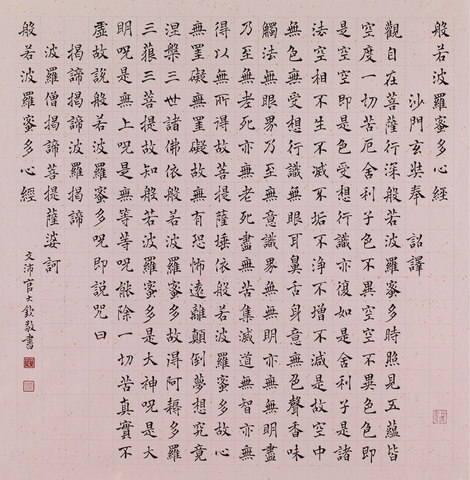 般若波羅蜜多心經
沙門玄奘奉 詔譯
觀自在菩薩行深般若波羅蜜多時照見五蘊皆
空度一切苦厄舍利子色不異空空不異色色即
是空空即是色受想行識亦復如是舍利子是諸
法空相不生不滅不垢不淨不增不減是故空中
無色無受想行識無眼耳鼻舌身意無色聲香味
觸法無眼界乃至無意識界無無明亦無無明盡
乃至無老死亦無老死盡無苦集滅道無智亦無
得以無所得故菩提薩埵依般若波羅蜜多故心
無罣礙無罣礙故無有恐怖遠離顛倒夢想究竟
涅槃三世諸佛依般若波羅蜜多故得阿耨多羅
三藐三菩提故知般若波羅蜜多是大神呪是大
明呪是無上呪是無等等呪能除一切苦真實不
虛故說般若波羅蜜多呪即說咒曰
揭諦揭諦波羅揭諦
波羅僧揭諦菩提薩婆訶
般若波羅蜜多心經
文沛官大欽敬書